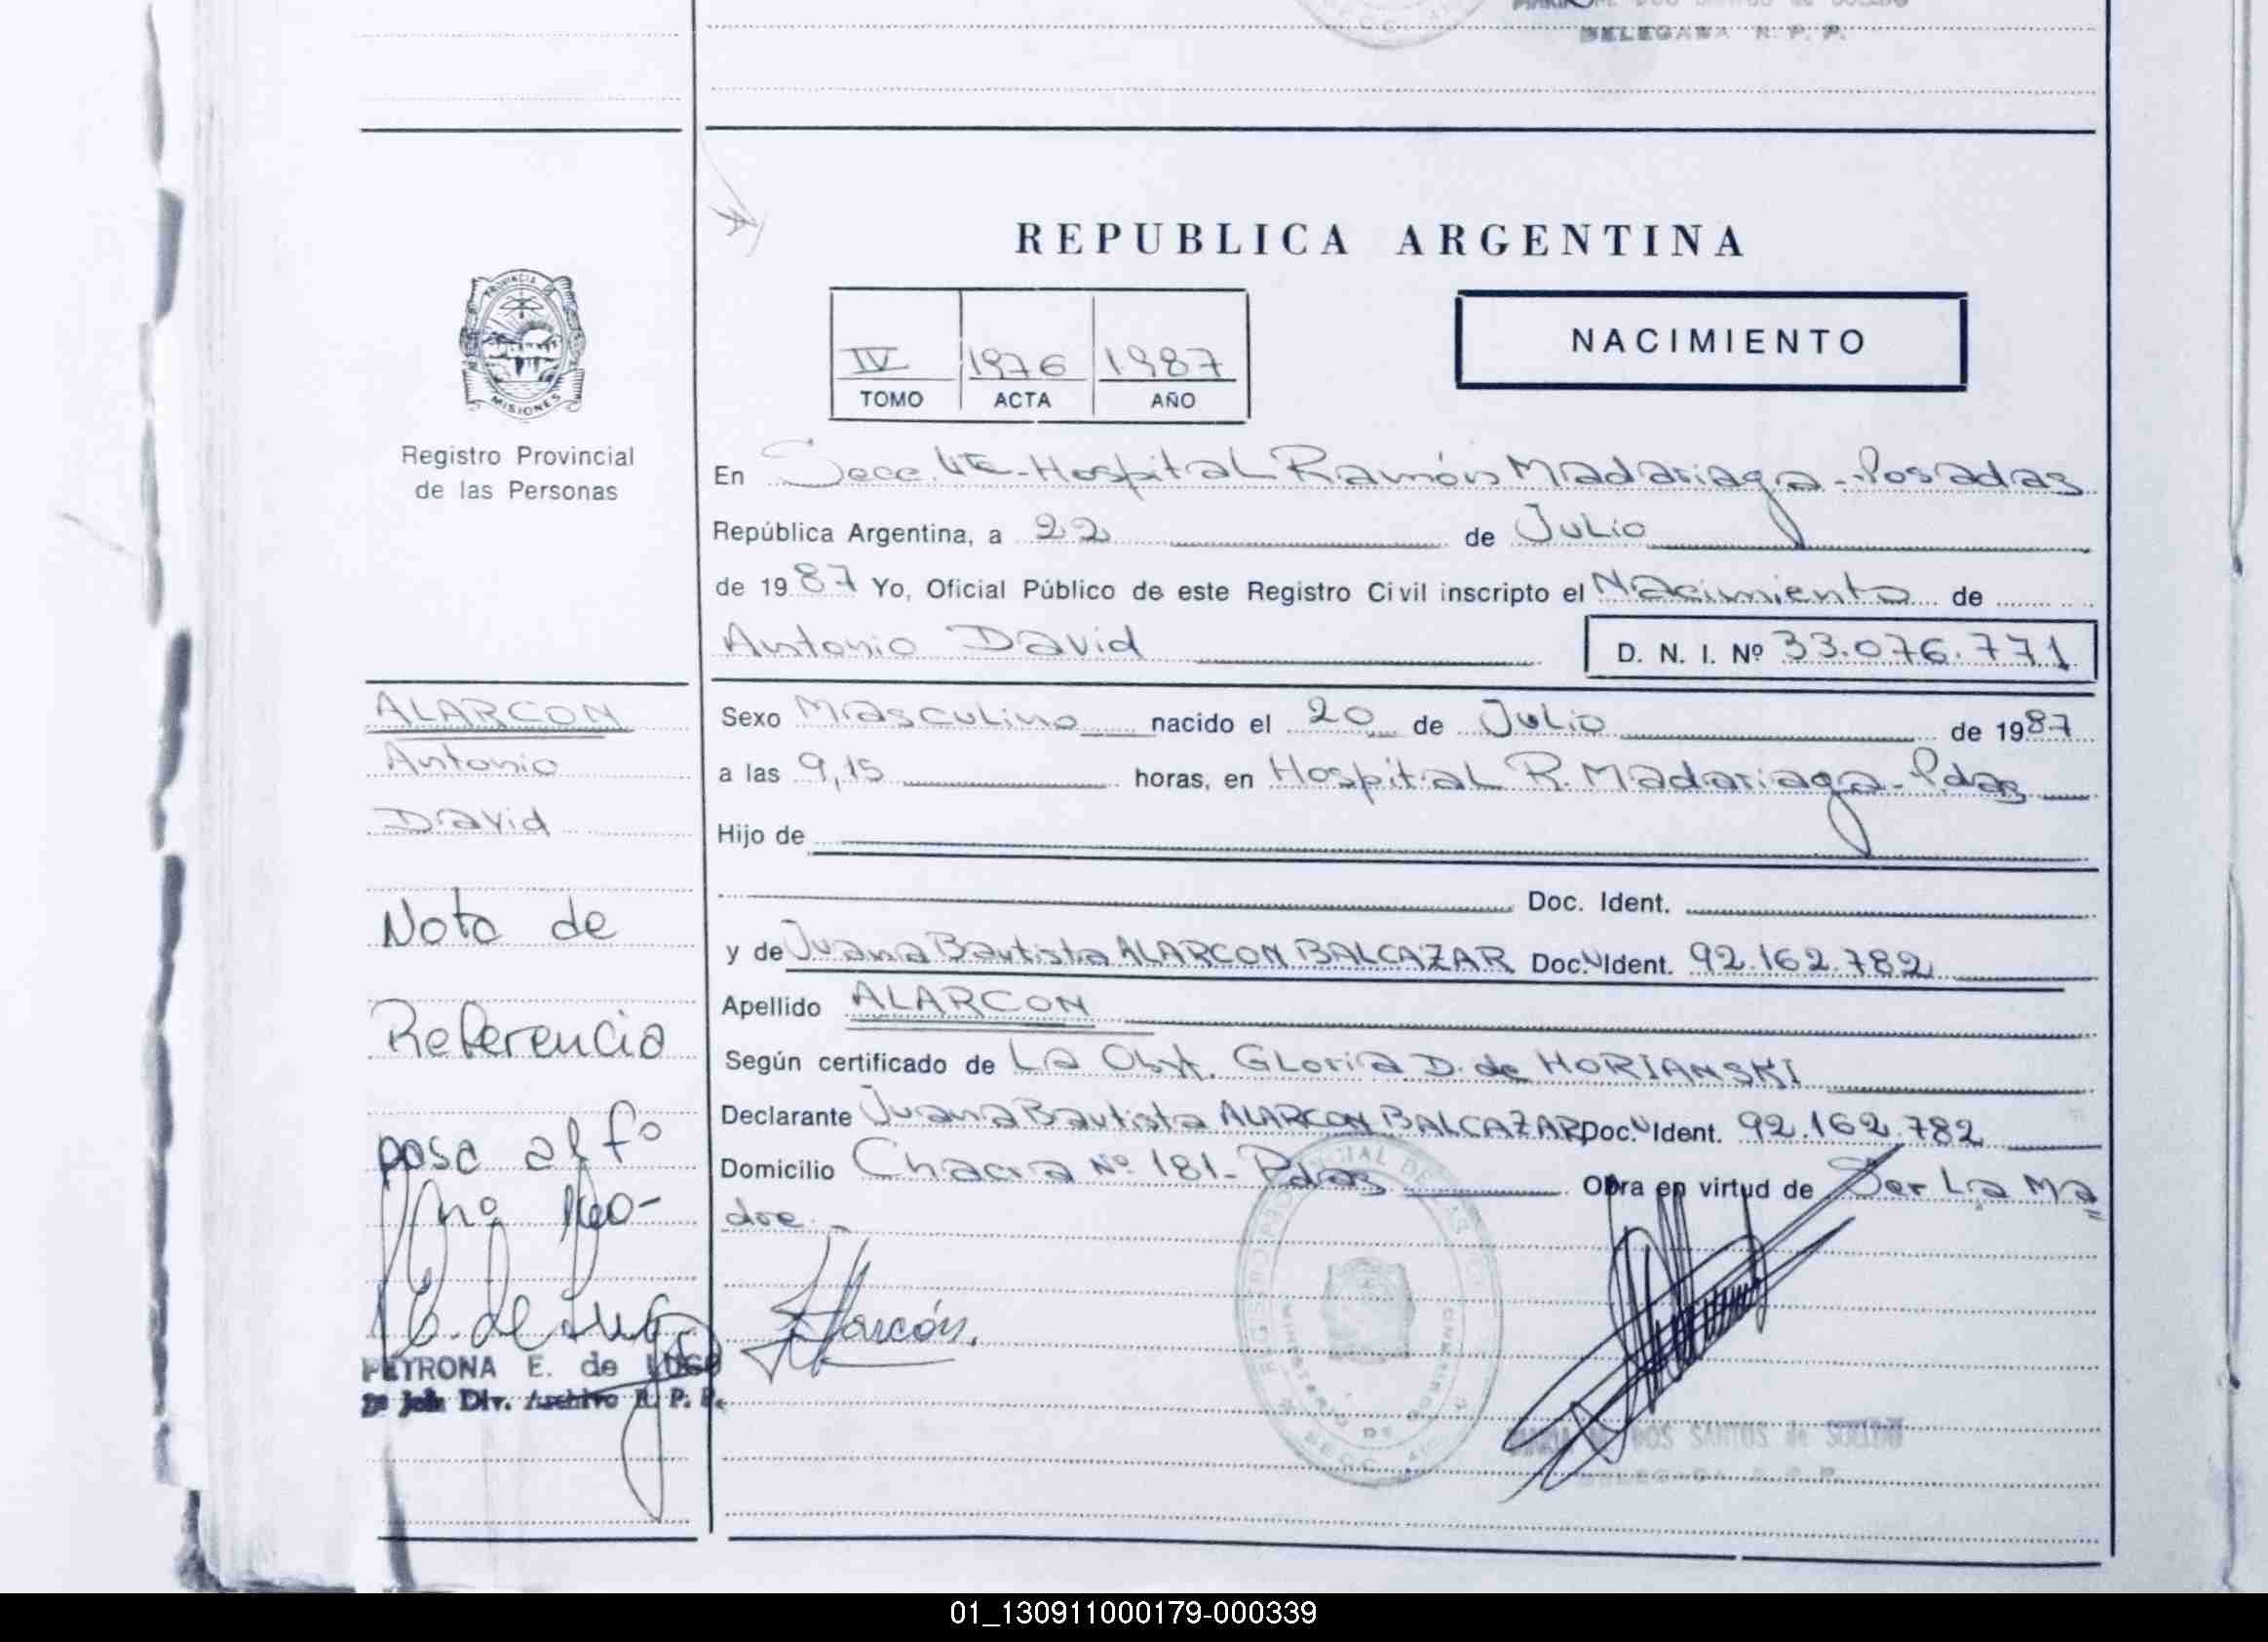 DELEGADA R. P. P.
REPUBLICA ARGENTINA
PROVINCIA DE
MISIONES
Registro Provincial
de las Personas
IV 1976 1987
TOMO ACTA AÑO
NACIMIENTO
En Secc. 4ta-Hospital Ramón Madariaga-Posadas
República Argentina, a 22 de Julio
de 1987 Yo, Oficial Público de este Registro Civil inscripto el Nacimiento de
Antonio David D. N. I. Nº 33.076.771
ALARCON
Antonio
David
Sexo Masculino nacido el 20 de Julio de 1987
a las 9,15 horas, en Hospital R. Madariaga-Pdas
Hijo de
Doc. Ident.
y de Juana Bautista ALARCON BALCAZAR Doc. Ident. 92.162.782
Apellido ALARCON
Según certificado de La Obst. Gloria D. de HORIANSKI
Declarante Juana Bautista ALARCON BALCAZAR Doc. Ident. 92.162.782
Domicilio Chacra Nº 181- Pdas Obra en virtud de Ser La Ma
dre.-
Nota de
Referencia
pasa al fº
Alarcón.
PETRONA E. de LUGO
Div. Archivo R. P. P.
DOS SANTOS de
01_130911000179-000339